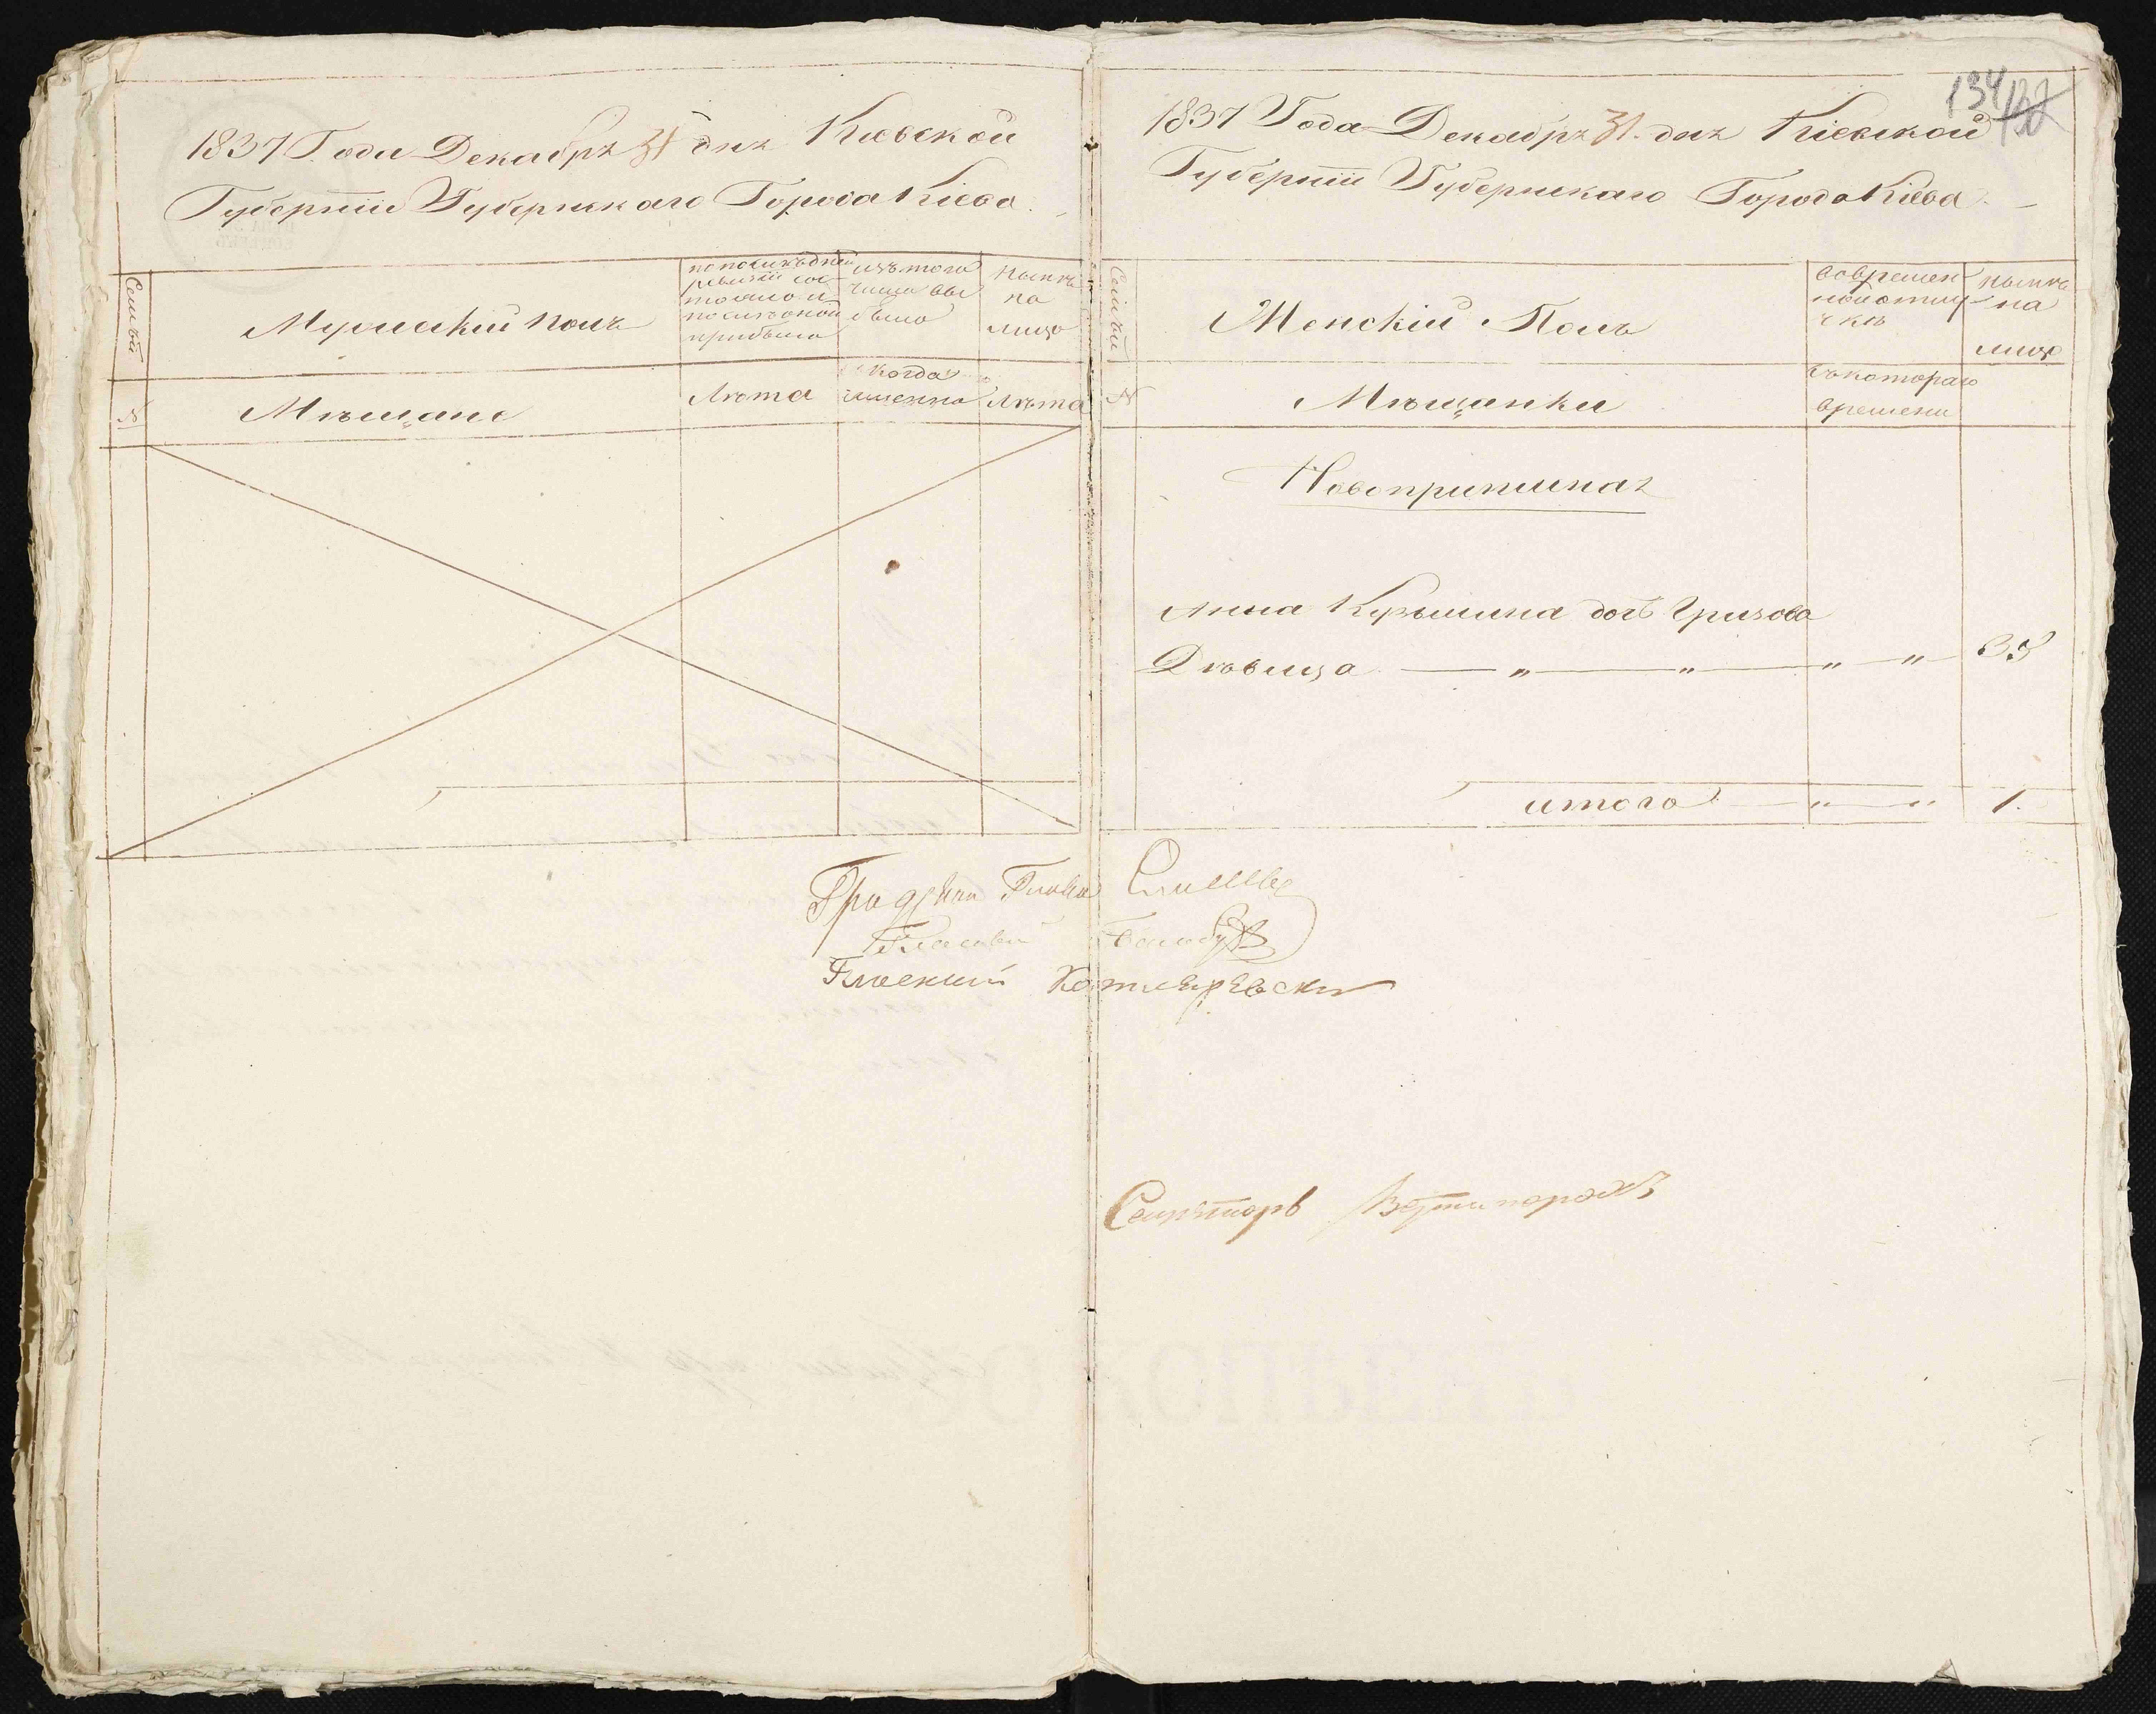 1837 Года Декабря 31 дня Киевской
Губернiи Губернскаго Города Кiева
Семьи
Мужескiй полъ
по последней
ревизiи сос
тояло и
после оной
прибыло
изъ того
числа вы
было
ныне
на
лицо
№
Мѣщане
Лѣта
когда
именно
Лѣта
134
1837 Года Декабря 31. дня Кiевской
Губернiи Губернскаго Города Кiева
Семьи
Женскiй Полъ
во времен
ной отлу
чкѣ
нынѣ
на
лицо
№
Мѣщанки
съ котораго
времени
Новоприписная
Анна Кузьмина дочь Гризова
Дѣвица — „ — „ — „ „ 35
итого — „ — „ 1.
Градской Глава
Гласный
Гласный Котляревски
Секретарь